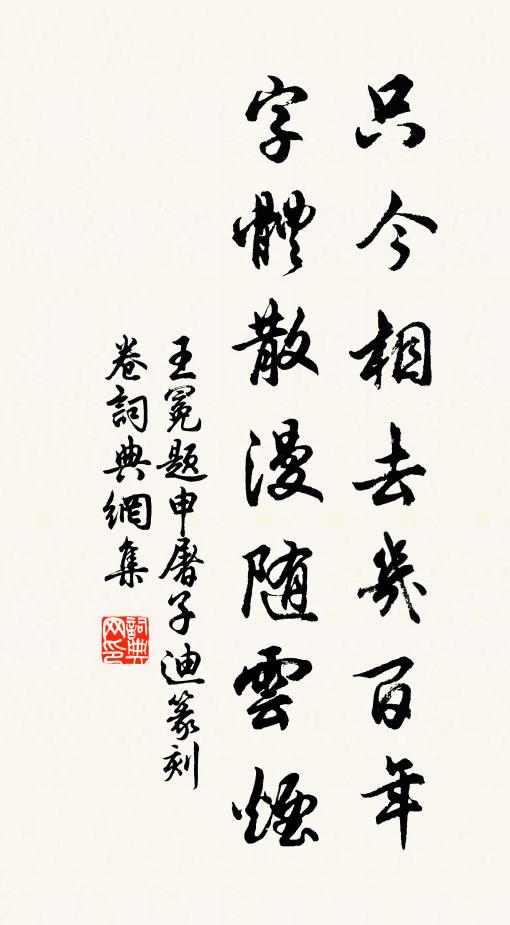 只今相去幾百年
字體散漫随雲煙
王冕題申屠子迪篆刻
卷詞典網集
詞典网印